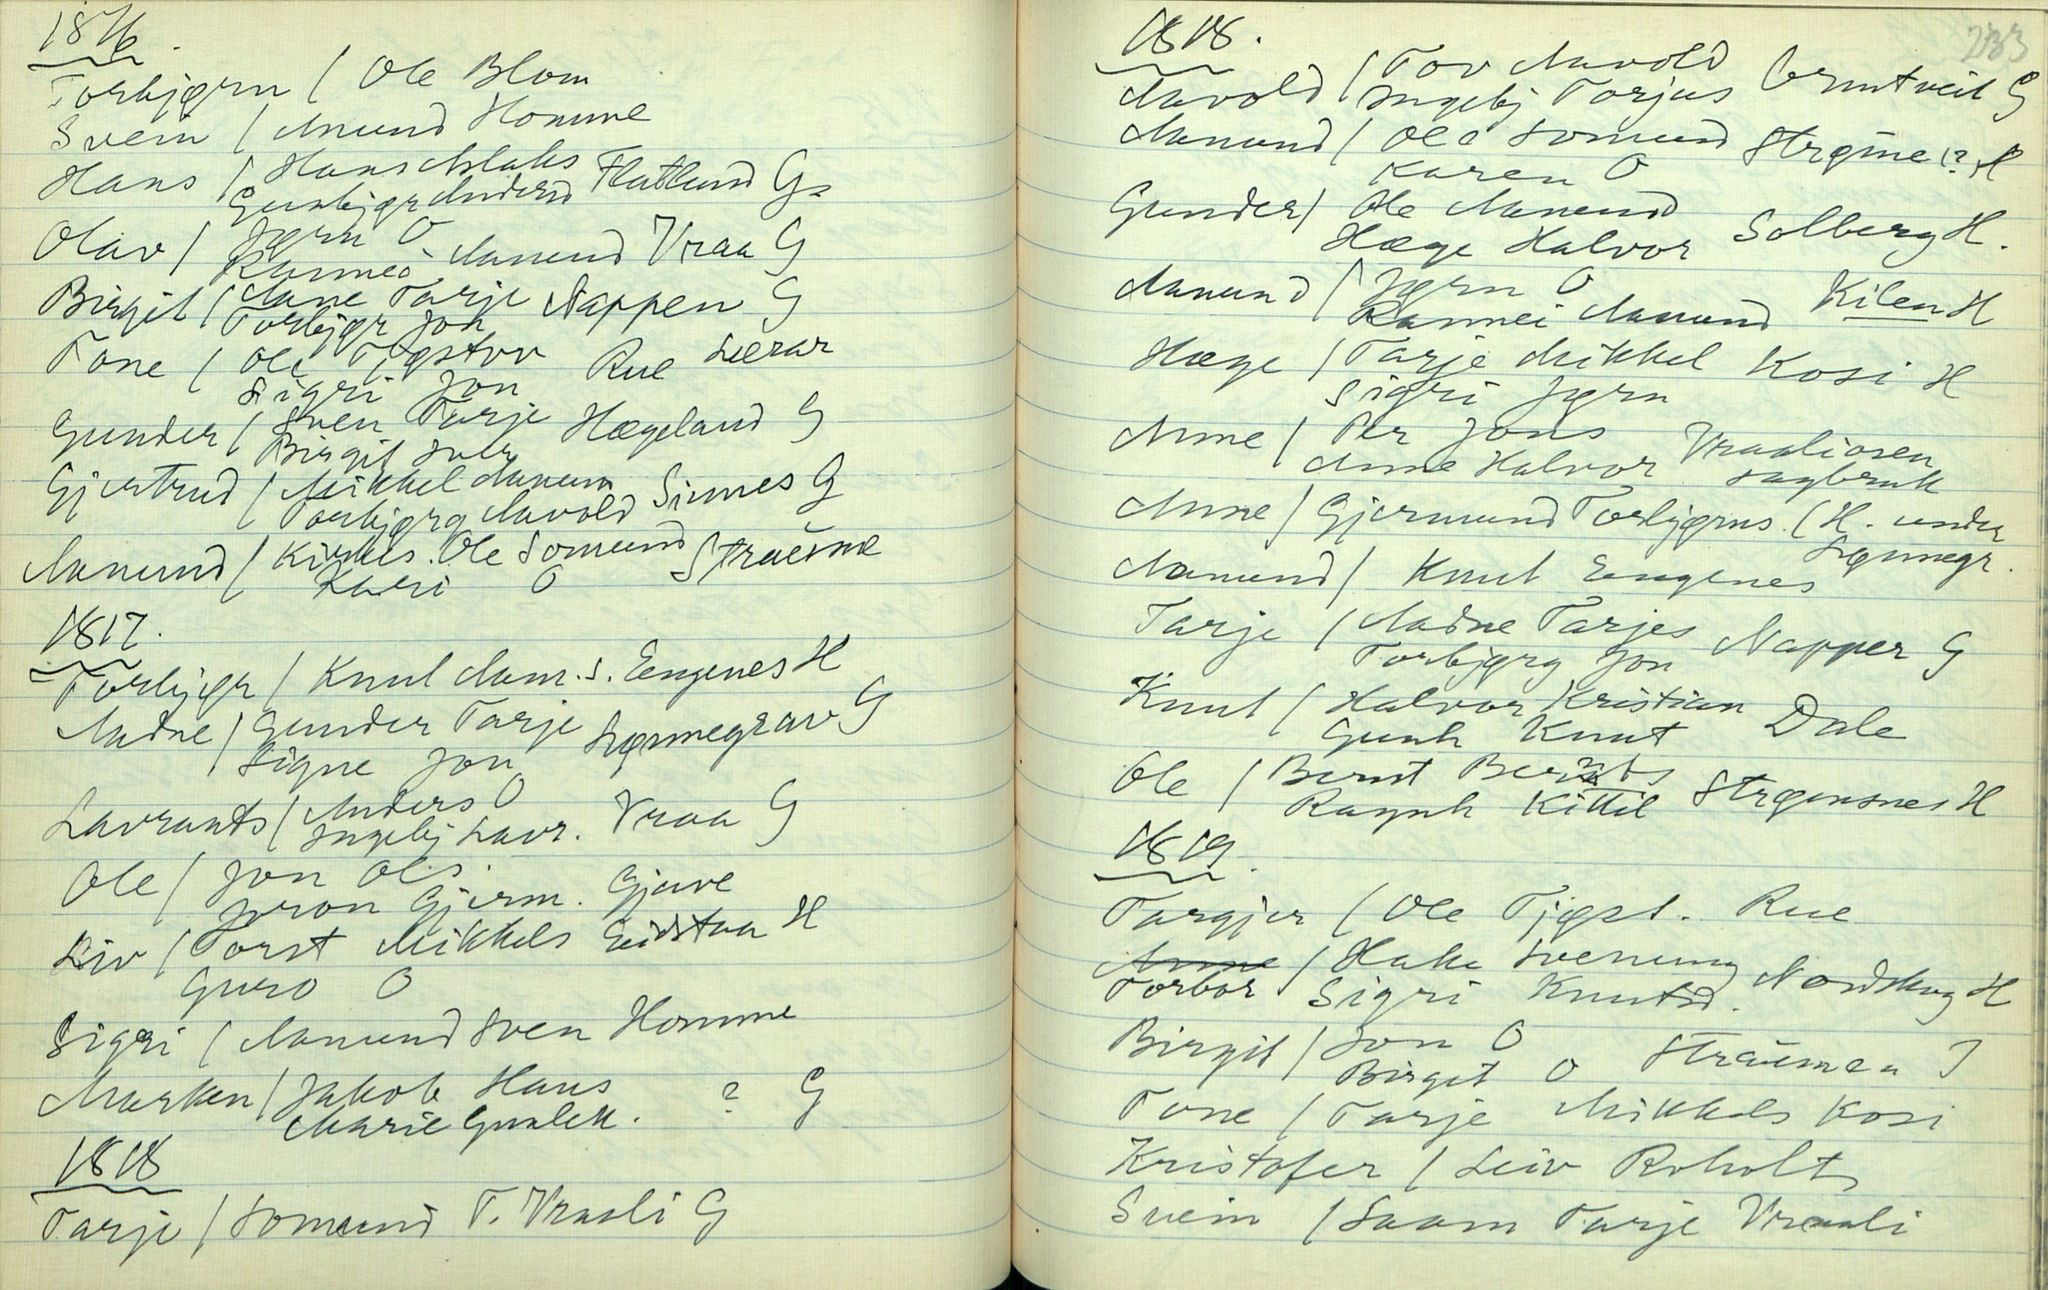 1816.
Torbjørn / Ole Blom
Svein / Anund Homme
Hans / Hans Aslaks
Gunbjør Anders Flatland G
Olav / Jørn O
Rannei Aanund Vraa G
Birgit / Aane Tarje Nappen G
Torbjør Jon
Tone / Ole Tjøstov Rue
Sigri Jon
Gunder / Sven Tarje Hægeland G
Birgit
Gjertrud / Mikkel Aanun Sinnes G
Torbjørg Aavold
Aanund / Ole Somund Straume
Kari O
1817.
Torbjør / Knut Aam. s. Eengenes H
Aadne / Gunder Tarje Lønnegrav G
Signe Jon
Lavrants / Anders O Vraa G
Ingebj Lavr.
Ole / Jon Ols. Gjave
Joron Gjerm.
Liv / Torst Mikkels Eidstaa H
Guro O
Sigri / Aanund Sven Homme
Marken / Jakob Hans ? G
Marie Gunlek.
1818
Tarje / Somund T. Vraali G
233
1818.
Aavold / Tov Aavold
Ingebj Tarjus G
Aanund / Ole Somund Strøme (? H
Karen O
Gunder / Ole Aanund Solberg H.
Hæge Halvor
Aanund / Jørn O Kilen H
Rannei Aanund
Hæge / Tarje Mikkel Kosi H
Sigri Jørn
Anne / Per Jons Vraaliosen
Anne Halvor sagbruk
Anne / Gjermund Torbjørns. (H. under
Lønnegr.
Aanund / Knut Eengenes
Tarje / Aadne Tarjes Napper G
Torbjørg Jon
Knut / Halvor Kristian Dale
Gunh Knut
Ole / Bernt Bernts Strømsnes H
Ragnh Kittil
1819.
Targjer / Ole Tjøst. Rue
Anne / Hake Svenung Nordskog H
Torbor Sigri Knutsd.
Birgit / Jon O Straumen J
Birgit O
Tone / Tarje Mikkels Kosi
Kristofer / Leiv Roholt
Svein / Saam Tarje Vraali